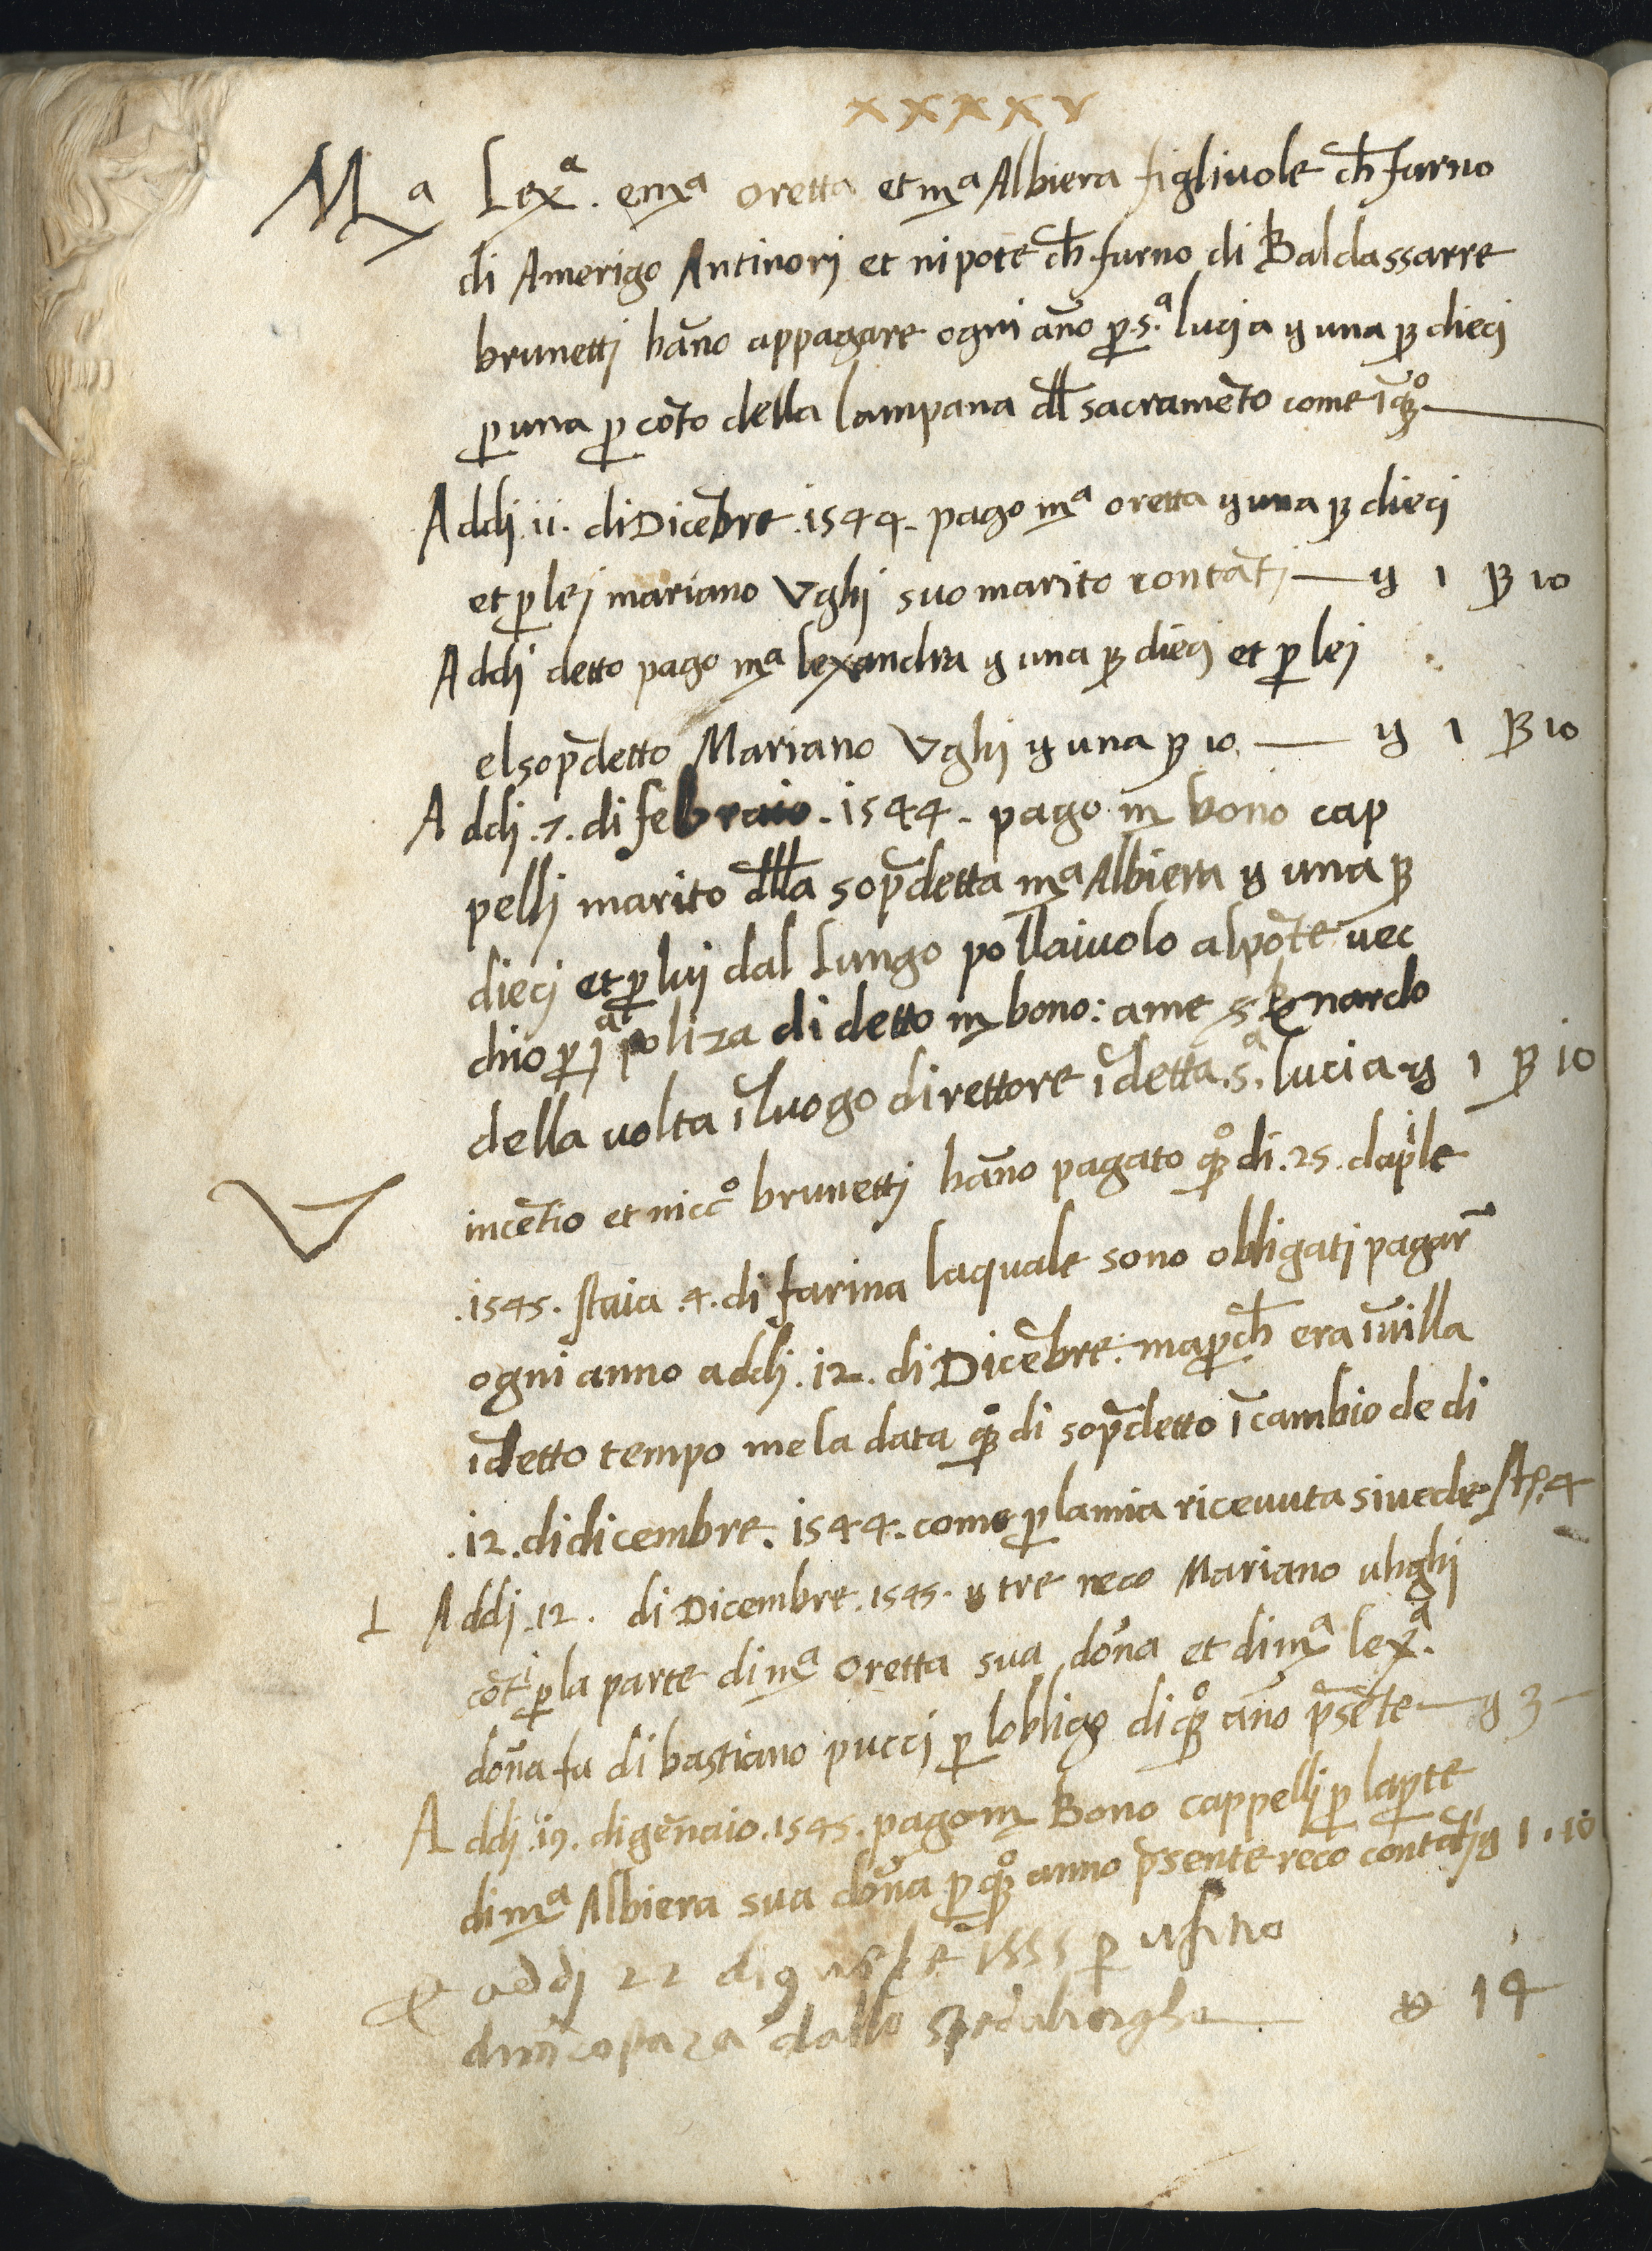 xxxxv
Mª Lexª. e mª oretta et mª Albiera figliuole ch furno
di Amerigo Antinorj et nipote ch furno di Baldassarre
brunettj hāno appagare ogni āno p sª. lucja ɏ una ꞵ diecj
p una p cōto della lampana dll sacramēto come ī qº.
Addj. 11. di Dicēbre. 1544. pago mª oretta ɏ una ꞵ diecj
et p lej mariano Vghj suo marito contātj — ɏ 1 ꞵ 10
Addj detto pago mª lexandra ɏ una ꞵ diecj et p lej
el sop̄detto Mariano Vghj ɏ una ꞵ 10. — ɏ 1 ꞵ 10
Addj. 7. di febraio. 1544. pago m bono cap
pellj marito dlla sop̄detta mª Albiera ɏ una ꞵ
diecj et p luj dal Lungo pollaiuolo al pōte uec
chio p jª poliza di detto m bono: a me s bernardo
della uolta ī luogo di rettore ī detta. sª. lucia ɏ 1 ꞵ 10
V incētio et niccº brunettj hāno pagato qº di. 25. daple
.1545. staia .4. di farina laquale sono obligatj pagar̄
ogni anno addj. 12. di Dicēbre: ma pch era ī uilla
ī detto tempo me la data qº di sop̄detto ī cambio de di
.12. di dicembre. 1544. come p la mia riceuuta si uede stª. 4
1 Addj. 12. di Dicembre. 1545. ɏ tre reco Mariano uhghj
cōti p la parte di mª Oretta sua dōna et di mª lexª.
dōna fu di bastiano puccj p lobligo di qº āno p̄sēte — ɏ 3 —
Addj. 19. di gēnaio. 1545. pago m Bono cappellj p la pte
di mª Albiera sua dōna p qº anno p̄sente reco contātj ɏ 1. 10
addj 22 di 1555 p
dallo — 14